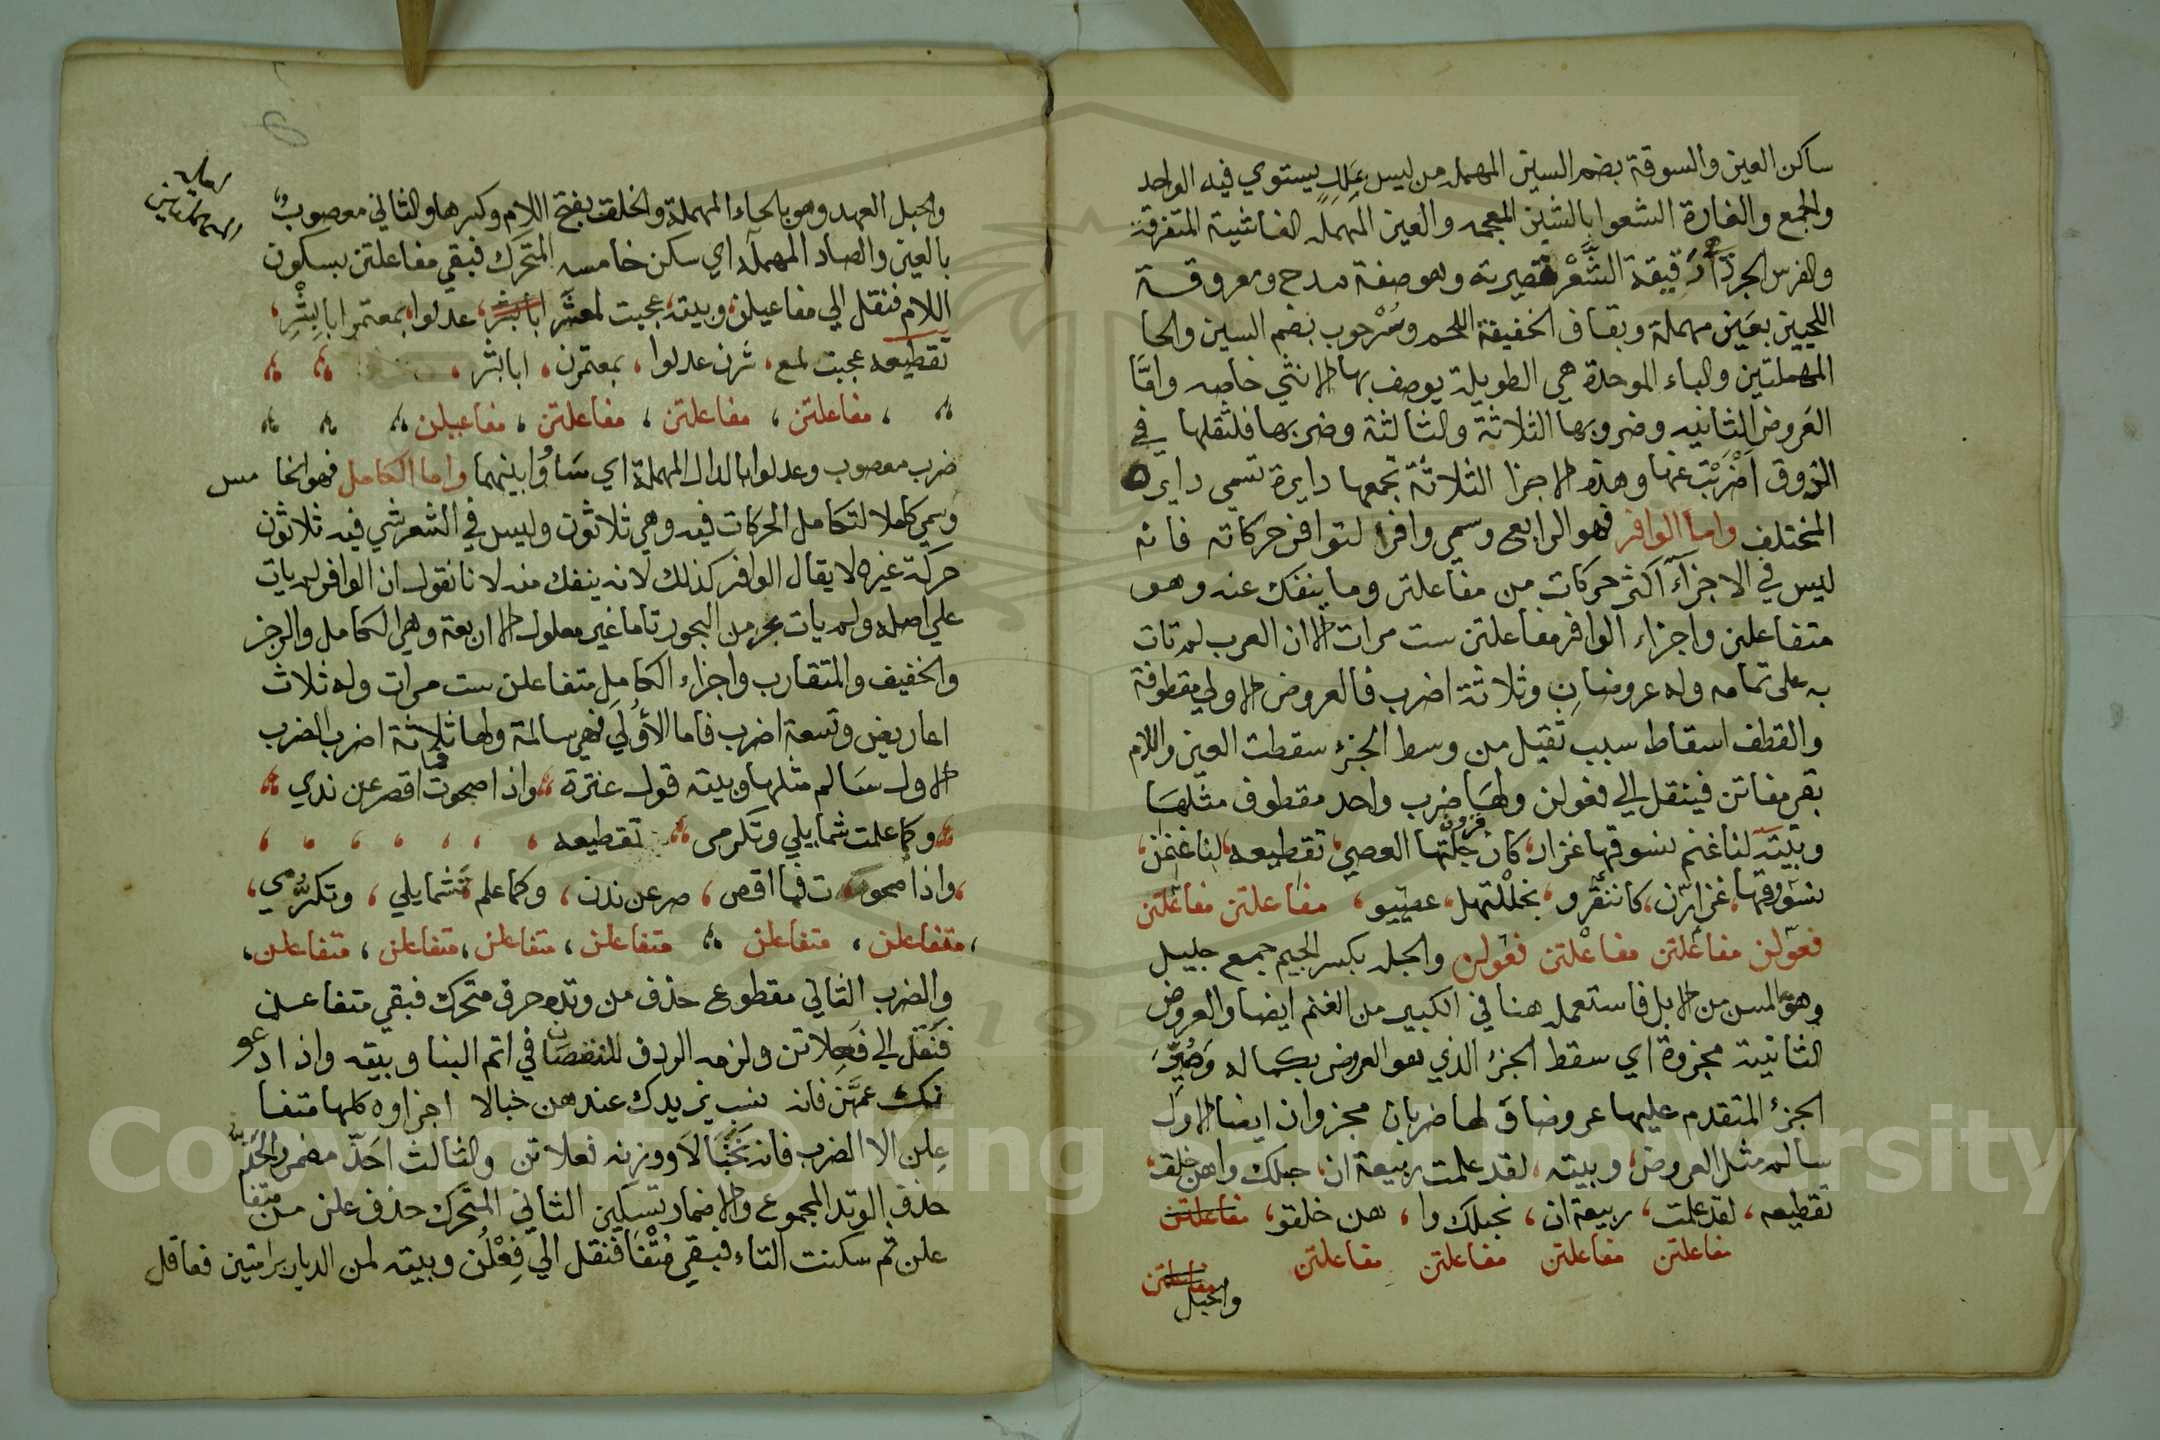 ساكن العين والسوقة بضم السين المهملة من ليس بملك يستوي فيه الواحد
والجمع والغارة الشعوا بالشين المعجمه والعين المهمله الفاشية المتفرقة
والفرس الجردا رقيقة الشعر قصيرته وهو صفة مدح ومعروقة
اللحيين بعين مهملة وبقاف الخفيفة اللحم وسرحوب بضم السين والحا
المهملتين والباء الموحدة هي الطويلة يوصف بها الانثي خاصه واما
العروض الثانيه وضروبها الثلاثة والثالثة وضربها فلثقلها في
الذوق اضربت عنها وهذه الاجزا الثلاثة تجمعها دايرة تسمي دايرة
المختلف واما الوافر فهو الرابع وسمي وافرا لتوافر حركاته فانه
ليس في الاجزآء اكثر حركات من مفاعلتن وما ينفك عنه وهو
متفاعلن واجزاء الوافر مفاعلتن ست مرات الا ان العرب لم تات
به على تمامه وله عروضان وثلاثة اضرب فالعروض الاولي مقطوفة
والقطف اسقاط سبب ثقيل من وسط الجزء سقطت العين واللام
بقي مفاتن فينقل الي فعولن ولها ضرب واحد مقطوف مثلها
وبيته لنا غنم نسوقها غزار كان قرون جلتها العصي تقطيعه لنا غنمن
نسوقها غزارن كاننقرو نجللتهل عصييو مفاعلتن مفاعلتن
فعولن مفاعلتن مفاعلتن فعولن والجلة بكسر الجيم جمع جليل
وهو المسن من الابل فاستعمله هنا في الكبير من الغنم ايضا والعروض
الثانية مجزوة اي سقط الجزء الذي هو العروض بكماله وصير
الجزء المتقدم عليها عروضا و لها ضربان مجزوان ايضا الاول
سالم مثل العروض وبيته لقد علمت ربيعة ان حبلك واهن خلق
تقطيعه لقد علمت ربيعة ان نحبلك وا هن خلقو مفاعلتن
مفاعلتن مفاعلتن مفاعلتن مفاعلتن
مفاعلتن
والحبل
والحبل العهد وهو بالحاء المهملة والخلق بفتح اللام وكسرها والثاني معصوب
بالعين والصاد المهملة اي سكن خامسه المتحرك فبقي مفاعلتن بسكون
اللام فنقل الي مفاعيلن وبيته عجبت لمعشر ابا بشر عدلوا بمعتمر ابا بشر
تقطيعه عجبت لمع شرن عدلوا بمعتمرن ابا بشر
مفاعلتن مفاعلتن مفاعلتن مفاعيلن
ضرب معصوب وعدلوا بالدال المهملة اي ساووا بينهما واما الكامل فهو الخامس
وسمي كاملا لتكامل الحركات فيه وهي ثلاثون وليس في الشعر شي فيه ثلاثون
حركة غيره لا يقال الوافر كذلك لانه ينفك منه لانا نقول ان الوافر لم يات
علي اصله ولم يات بحر من البحور تاما غير معلول الا اربعة وهي الكامل والرجز
والخفيف والمتقارب واجزاء الكامل متفاعلن ست مرات وله ثلاث
اعاريض وتسعة اضرب فاما الأولي فهي سالمة ولها ثلاثة اضرب الضرب
الاول سالم مثلها وبيته قول عنترة واذا صحوت فما اقصر عن ندي
وكما علمت شمايلي وتكرمي تقطيعه
واذا صحو ت فما اقص صر عن ندن وكما علم ت شمايلي وتكررمي
متفاعلن متفاعلن متفاعلن متفاعلن متفاعلن متفاعلن
والضرب الثاني مقطوع حذف من وتده حرف متحرك فبقي متفاعل
فنقل الي فعلاتن ولزمه الردف للنقصان في اتم البنا وبيته واذا دعو
نك عمهن فانه نسب يزيدك عندهن خبالا اجزاوه كلها متفا
علن الا الضرب فانه نخبالا ووزنه فعلاتن والثالث احذ مضمر والحذ
حذف الوتد المجموع والاضمار تسكين الثاني المتحرك حذف علن من متفا
علن ثم سكنت التاء فبقي متفا فنقل الي فعلن وبيته لمن الديار برامتين فعاقل
Copyright © King Saud University